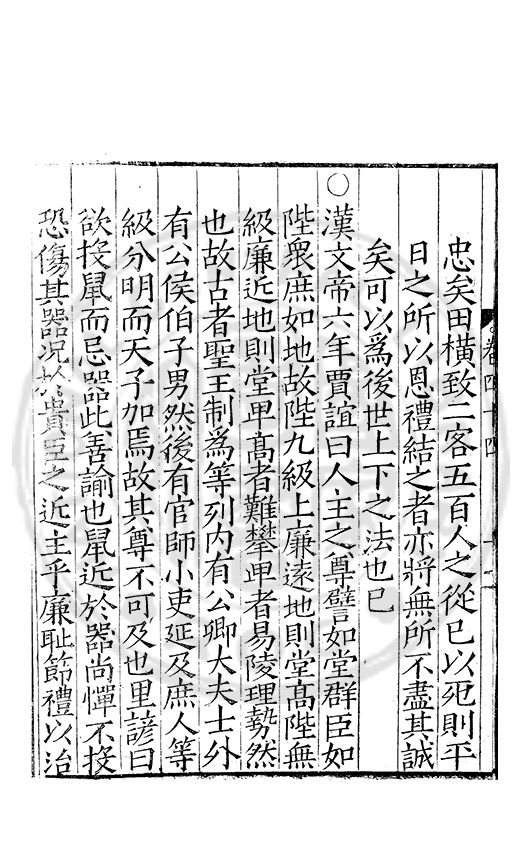 忠矣田橫致二客五百人之從已以死則平
日之所以恩禮結之者亦將無所不盡其誠
矣可以為後世上下之法也已
○漢文帝六年賈誼曰人主之尊譬如堂群臣如
陛衆庶如地故陛九級上廉遠地則堂高陛無
級廉近地則堂卑高者難攀卑者易陵理勢然
也故古者聖王制為等列内有公卿大夫士外
有公侯伯子男然後有官師小吏延及庶人等
級分明而天子加焉故其尊不可及也里諺曰
欲投鼠而忌器此善諭也鼠近於器尚憚不投
恐傷其器况於貴臣之近主乎廉耻節禮以治
卷四十四